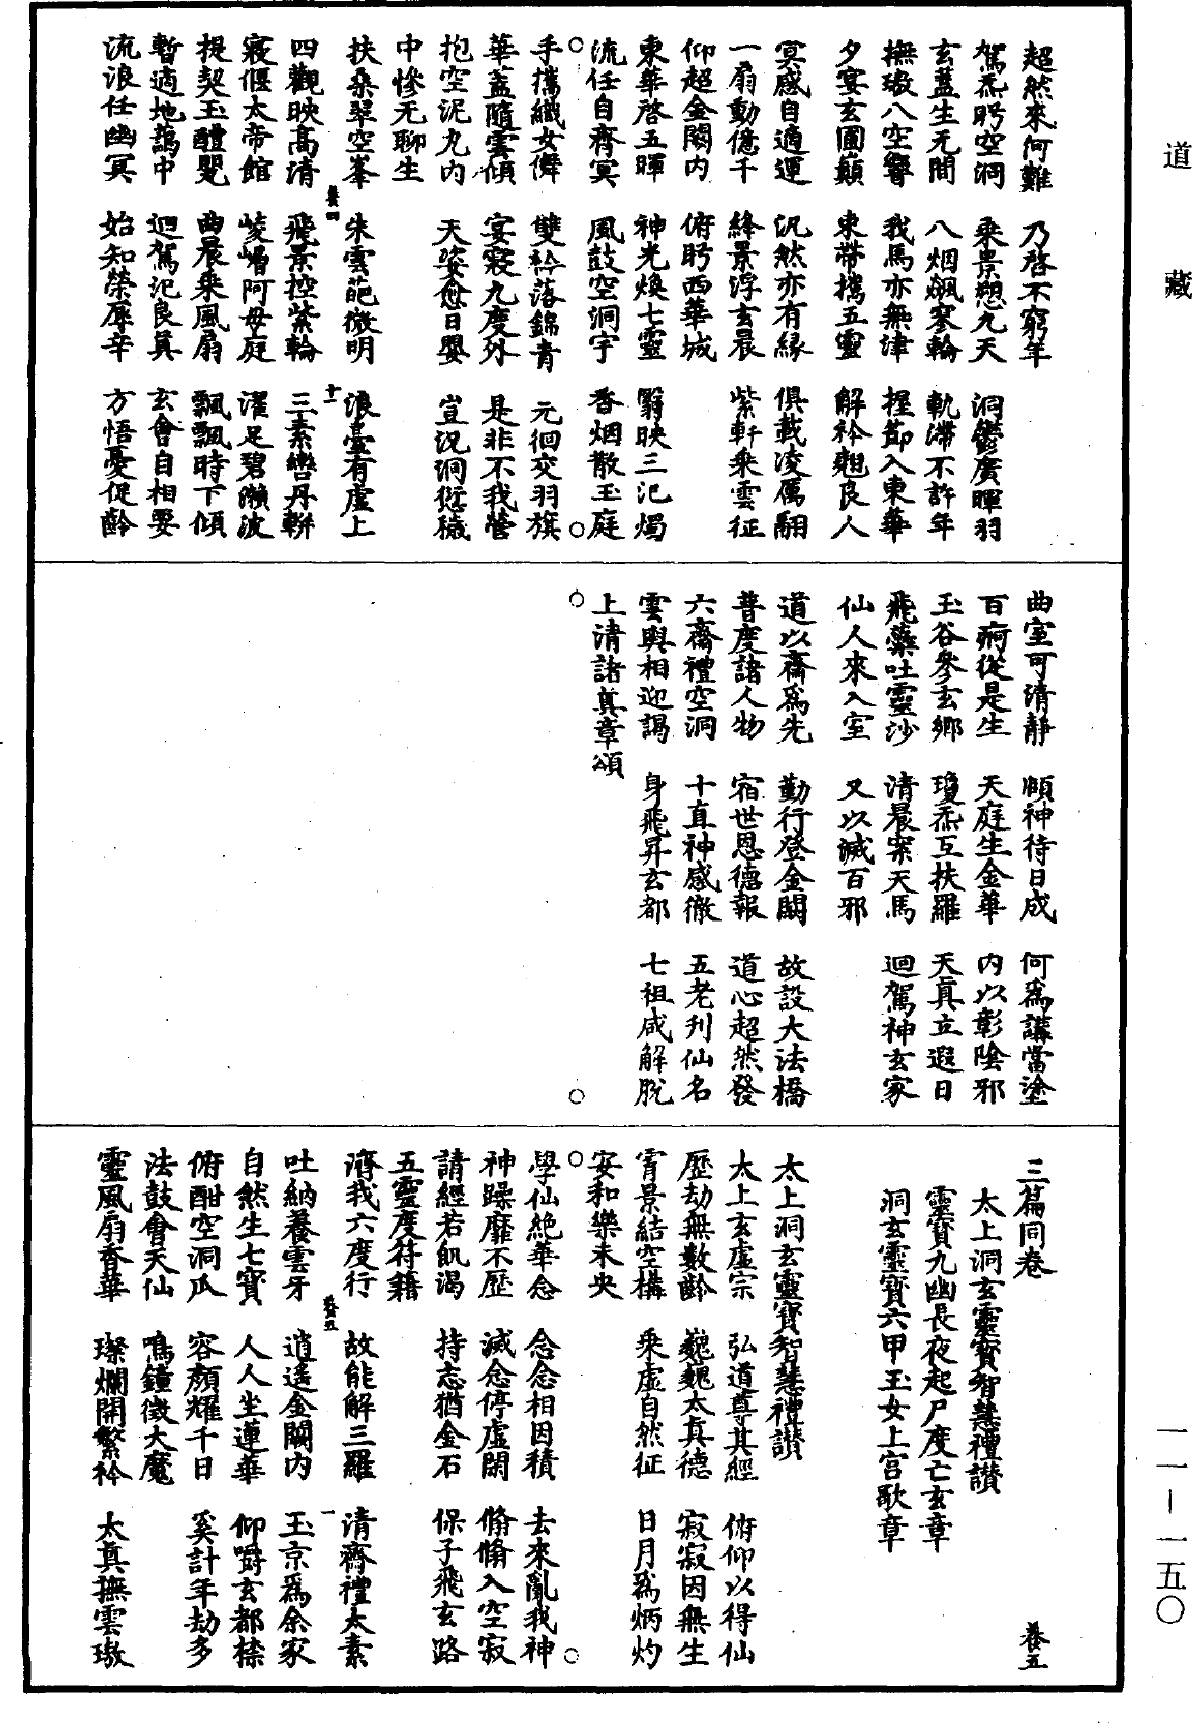 道藏
超然來何難　乃啓不窮年
駕炁眄空洞　乘景愬九天　洞鬱廣暉羽
玄蓋生无間　八烟颯寥輪　軌滯不許年
撫璈八空響　我馬亦無津　握節入東華
夕宴玄圃巔　束帶攜五靈　解衿翹良人
冥感自適運　汎然亦有緣　俱載凌厲翮
一扇動億千　絳景浮玄晨　紫軒乘雲征
仰超金闕內　俯眄西華城
東華啓五暉　神光煥七靈　翳映三氾燭
流任自齊冥　風鼓空洞宇　香烟散玉庭
手攜織女儛　雙衿落錦青　元徊交羽旗
華蓋隨雲傾　宴寢九度外　是非不我營
抱空泥丸內　天姿愈日嬰　豈況洞衍穢
中慘无聊生
扶桑翠空峯　朱雲葩微明　浪臺有虛上
卷四　十一
四觀映高清　飛景控紫輪　三素轡丹軿
寢偃太帝館　崚嶒阿母庭　濯足碧瀨波
提契玉醴甖　曲晨乘風扇　飄飄時下傾
暫適地鴿中　迴駕汜良真　玄會自相要
流浪任幽冥　始知榮辱辛　方悟憂促齡
曲室可清靜　頤神待日成　何為講當塗
百痾從是生　天庭生金華　內以彰陰邪
玉谷參玄鄉　瓊炁互扶羅　天真立遐日
飛藥吐靈沙　清晨案天馬　迴駕神玄家
仙人來入室　又以滅百邪
道以齋為先　勤行登金闕　故設大法橋
普度諸人物　宿世恩德報　道心超然發
六齋禮空洞　十直神感徹　五老刋仙名
雲輿相迎謁　身飛昇玄都　七祖咸解脫
上清諸真章頌
三篇同卷　卷五
太上洞玄靈寶智慧禮讚
靈寶九幽長夜起尸度亡玄章
洞玄靈寶六甲玉女上宮歌章
太上洞玄靈寶智慧禮讚
太上玄虛宗　弘道尊其經　俯仰以得仙
歷劫無數齡　巍巍太真德　寂寂因無生
霄景結空構　乘虛自然征　日月為炳灼
安和樂未央
學仙絕華念　念念相因積　去來亂我神
神躁靡不歷　滅念停虛閑　翛翛入空寂
請經若飢渴　持志猶金石　保子飛玄路
五靈度符籍
濟我六度行　故能解三羅　清齋禮太素
卷五　一
吐納養雲牙　逍遙金闕內　玉京為余家
自然生七寶　人人坐蓮華　仰嚼玄都㮈
俯酣空洞瓜　容顏耀千日　奚計年劫多
法鼓會天仙　鳴鐘徵大魔
靈風扇香華　璨爛開繁衿　太真撫雲璈
一一—一五〇